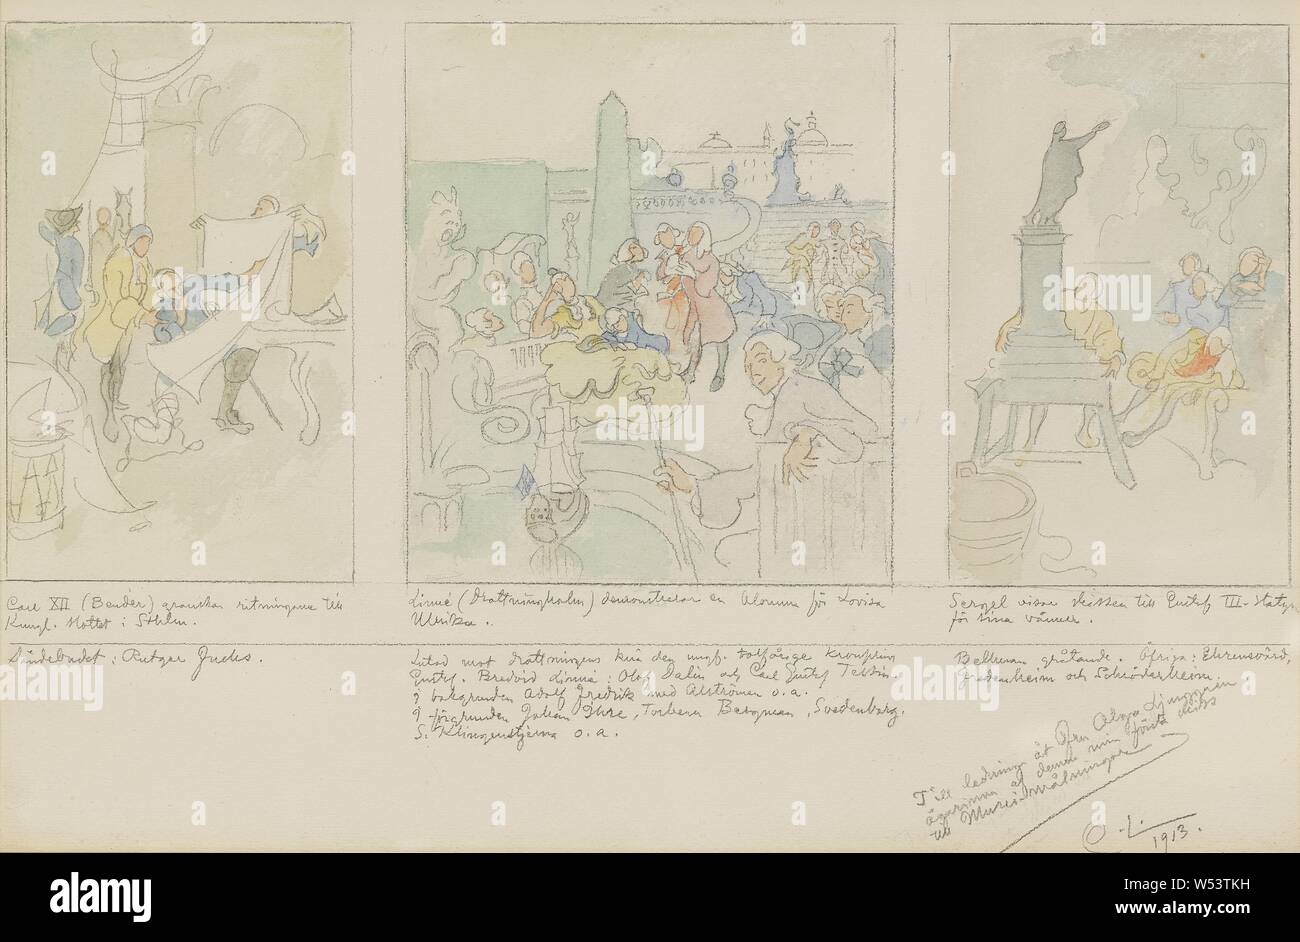 Carl XII (Bender) granskar ritningarna till
Kungl. slottet i Sthlm.
Sändebudet: Rutger Fuchs.
Linné (Drottningholm) demonstrerar en blomma för Lovisa
Ulrika.
Lutad mot drottningens knä den ungf. tolfårige kronprins
Gustf. Bredvid Linné: Olof Dalin och Carl Gustf Tessin.
I bakgrunden Adolf Fredrik med Alströmer o.a.
I förgrunden Johan Ihre, Torbern Bergman, Svedenborg.
S. Klingenstjerna o.a.
Sergel visar skissen till Gustf III-statyn
för sina vänner.
Bellman gråtande. Öfriga: Ehrensvärd,
Fredenheim och Schröderheim.
Till ledning åt Fru Olga Ljunggren
ägarinna af denna min första skiss
till Musei-målningar
C.L.
1913.
alamy
alamy
Image ID: W53TKH
www.alamy.com